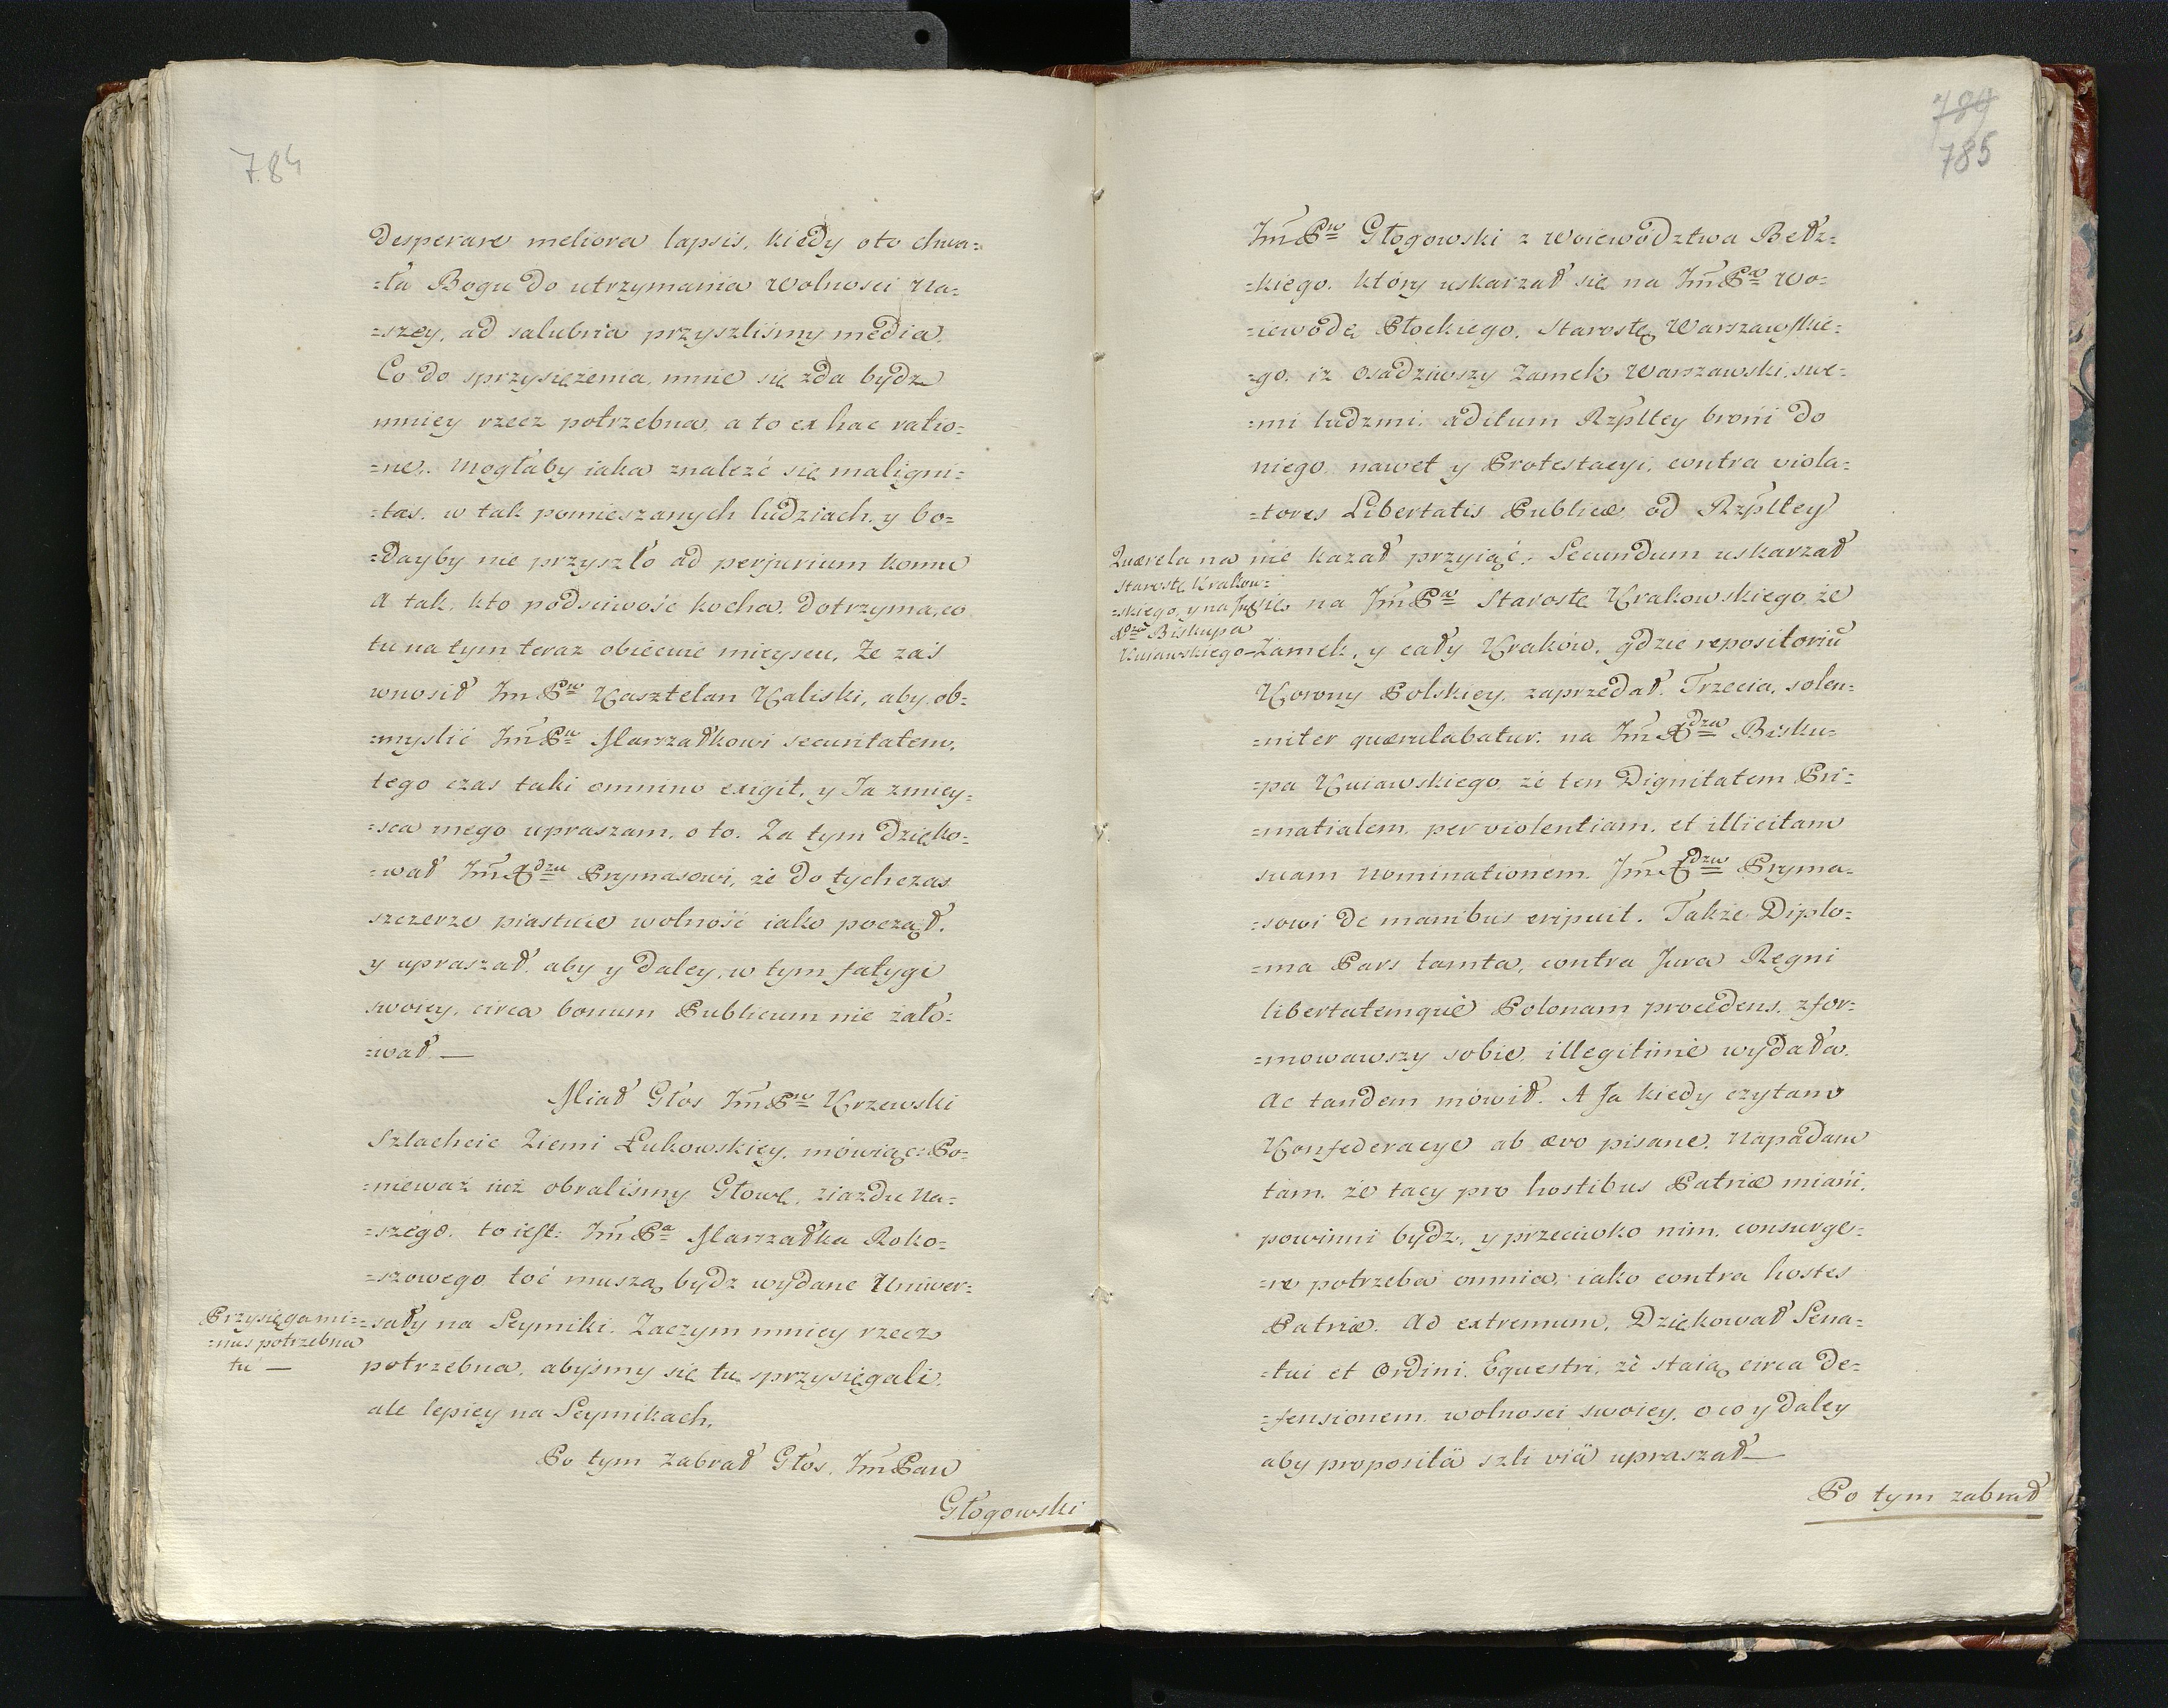 784
Desperare meliora lapsis, kiedy oto chwa=
=ła Bogu do utrzymania Wolnosci Na=
=szey, ad salubria przyszliśmy media.
Co do sprzysiężenia, mnie się zda bydz
mniey rzecz potrzebna, a to ex hac ratio=
=ne. Mogłaby iaka znaleźć się maligni=
=tas, w tak pomieszanych ludziach, y bo=
=dayby nie przyszło ad perjurium komu
A tak, kto podsciwość kocha, dotrzyma, co
tu na tym teraz obiecuie mieyscu, Że zaś
wnosił Im Pn Kasztelan Kaliski, aby ob=
=myslić Jm̃ Pu Marszałkowi securitatem,
tego czas taki omnino exigit, y Ja zmiey=
=sca mego upraszam, o to. Za tym dzięko=
=wał Jm̃ Xdzu Prymasowi, że do tychczas
szczerze piastuie wolność iako począł,
y upraszał, aby y daley, w tym fatygi
swoiey, circa bonum Publicum nie żało=
=wał —
Miał Głos Jm̃ Pn Krzewski
Szlachcic Ziemi Łukowskiey, mówiąc: Po=
=nieważ iuż obraliśmy Głowę, ziazdu Na=
=szego, to iest: Jm̃ Pa Marszałka Roko=
=szowego toć muszą bydz wydane Uniwer=
Przysięga mi=
=nus potrzebna
tu —
=sały na Seymiki. Zaczym mniey rzecz
potrzebna, abyśmy się tu sprzysięgali,
ale lepiey na Seymikach.
Po tym Zabrał Głos, Jm̃ Pan
Głogowski
789
785
Jm̃ Pn Głogowski z Woiewództwa Bełz=
=kiego, który uskarzał się na Jm̃ Pa Wo=
=iewodę Płockiego, Starostę Warszawskie=
=go, iz osadziwszy Zamek Warszawski, swe=
=mi ludzmi, aditum Rzpltey broni do
niego, nawet y Protestacyi, contra viola=
=tores Libertatis Publicæ od Rzpltey
Quærela na
Starostę Krakow=
=skiego, y na Jm̃
Xdza Biskupa
Kuiawskiego —
nie kazał przyiąć. Secundum uskarzał
się na Jm̃ Pa Starostę Krakowskiego, że
Zamek, y cały Kraków, gdzie repositoriũ
Korony Polskiey, zaprzedał. Trzecia, solen=
=niter quærulabatur, na Jm̃ Xdza Bisku=
=pa Kuiawskiego, że ten Dignitatem Pri=
=matialem, per violentiam, et illicitam
suam Nominationem, Jm̃ Xdzu Pryma=
=sowi de manibus eripuit. Także Diplo=
=ma Pars tamta, contra Jura Regni
libertatemquè Polonam procedens, zfor=
=mowawszy sobie, illegitimè wydała.
Ac tandem mówił. A Ja kiedy czytam
Konfederacye ab ævo pisane, Napadam
tam, że tacy pro hostibus Patriæ miani,
powinni bydz, y przeciwko nim, consurge=
=re potrzeba omnia, iako contra hostes
Patriæ. Ad extremum, Dziękował Sena=
=tui et Ordini Equestri, że staią circa de=
=fensionem, wolnosci swoiey, o co y daley
aby propositâ szli viâ upraszał —
Po tym zabrał